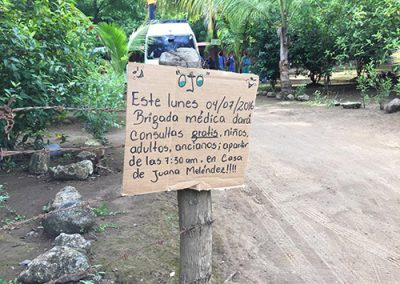 "ojo"
Este lunes 04/07/2016
Brigada médica dará
consultas gratis, niños,
adultos, ancianos; apartir
de las 7:30 am. en Casa
de Juana Meléndez!!!!